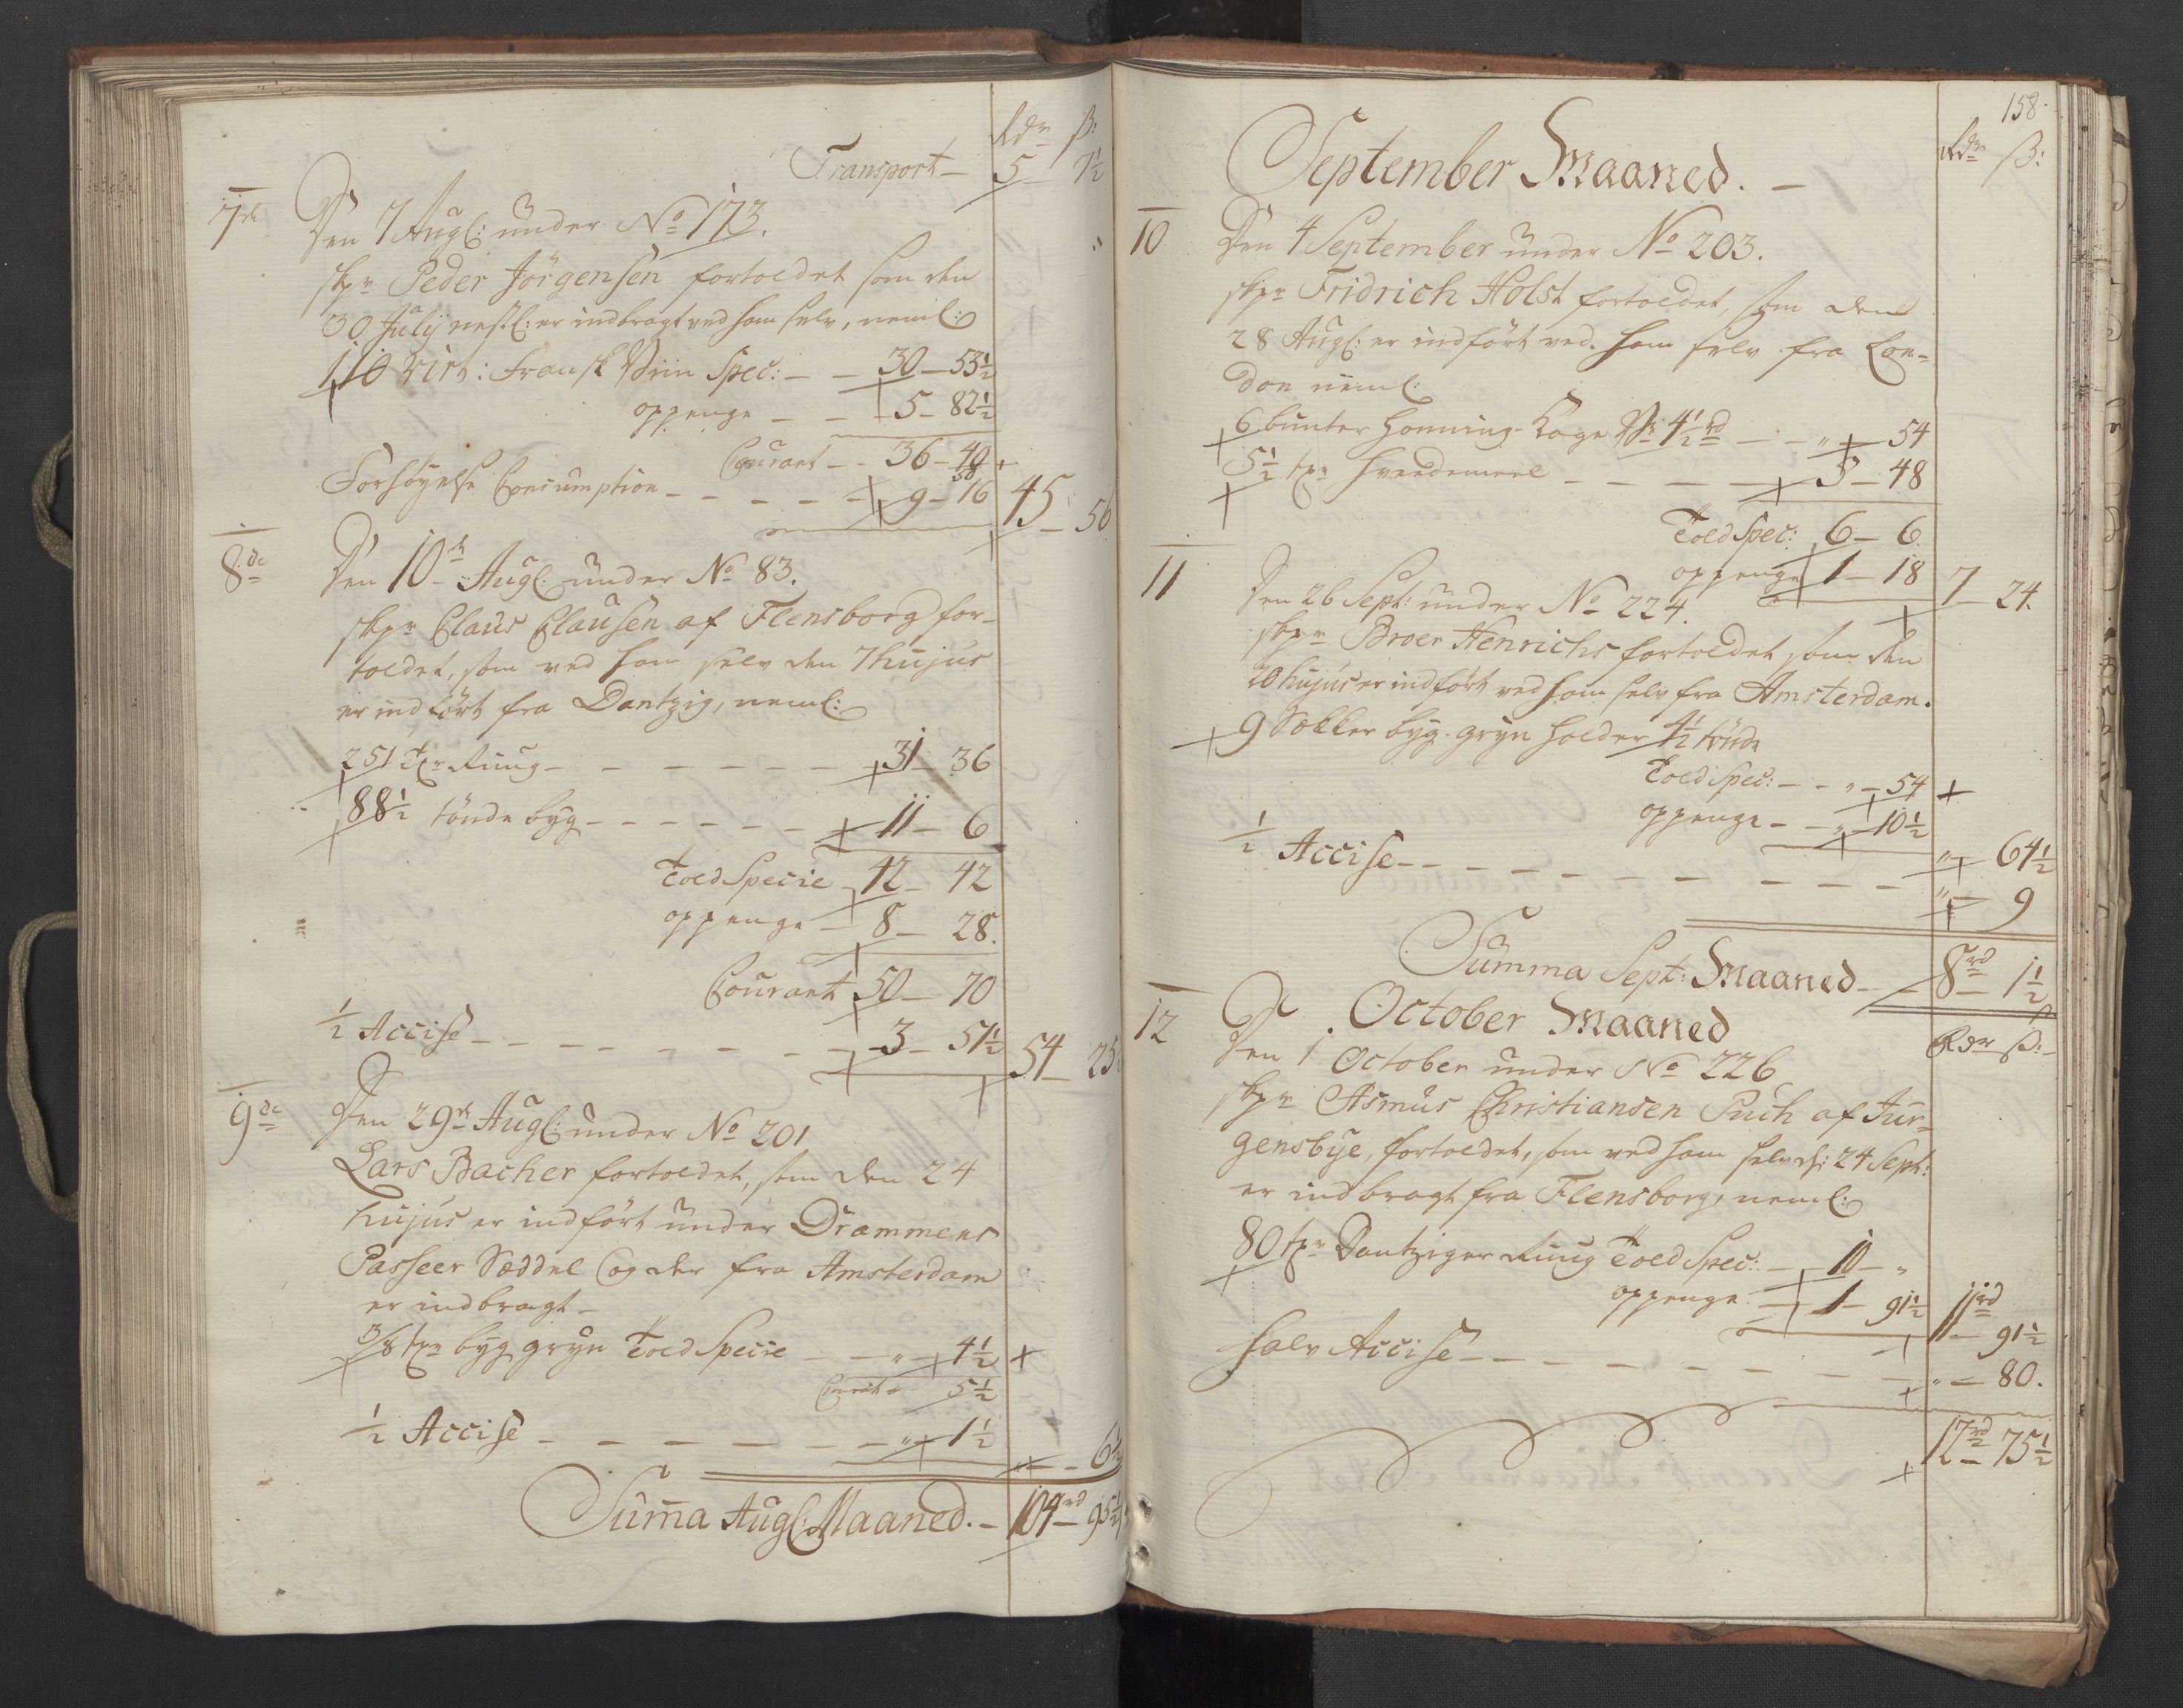 Rdr ß:
Transport – 5 – 7½
7de Den 7 Augl: under No 173.
skpr Peder Jörgensen fortoldet som den
30 Julij nestl: er indbragt ved ham selv, neml:
110 Virt: Fransk Viin Spec: – – 30 – 53½
oppenge – – – 5 – 82½
Courant – – 36 – 40
Forhöyelse Consumption – – – – – 9 – 16 45 – 56
8de Den 10de Augl: under No 83.
skpr Claus Clausen af Flensborg for-
toldet, som ved ham selv den 7 hujus
er indfört fra Dantzig, neml:
251 Tr Ruug – – – – – – – 31 – 36
88½ tönde byg – – – – – – 11 – 6
Told Specie – 42 – 42
oppenge – 8 – 28.
Courant 50 – 70
½ Accise – – – – – – – – 3 – 51½ 54 – 25
9de Den 29de Augl: under No 201
Lars Bacher fortoldet, som den 24
hujus er indfört under Drammens
Passeer Sæddel og der fra Amsterdam
er indbragt –
3/8 tr byg gryn Told Specie – – " – 4½
Courant 5½
½ Accise – – – – – – – " – 1½ " – 6½
Summa Augl: Maaned. – 104rd 95½
158.
Rdr ß:
September Maaned. –
10 Den 4 September under No 203.
skpr Fridrich Holst fortoldet, som den
28 Augl: er indfört ved ham selv fra Lon-
don neml:
6 bunter Honning-Kage 4½rd – – " – 54
5½ tr Hvedemeel – – – – – 5 – 48
Told Spec: 6 – 6
oppenge 1 – 18 7 – 24.
11 Den 26 Sept: under No 224.
skpr Broer Henrichs fortoldet som den
20 hujus er indfört ved ham selv fra Amsterdam.
9 Sækker byg-gryn holder 4½ tönde
Told Spec: – – " – 54
oppenge – – " – 10½
" – 64½
½ Accise – – – – – – – – – – " – 9
Summa Sept: Maaned – 8rd 1½
October Maaned
Rdr ß: –
12 Den 1 October under No 226
skpr Asmus Christiansen Puch af Jür-
gensbye, fortoldet, som ved ham selv d: 24 Sept:
er indbragt fra Flensborg, neml:
80 tr Dantziger Ruug Told Spec: – 10 – "
oppenge – 1 – 91½ 11rd – 91½
Halv Accise – – – – – – – – " – 80.
12rd – 75½